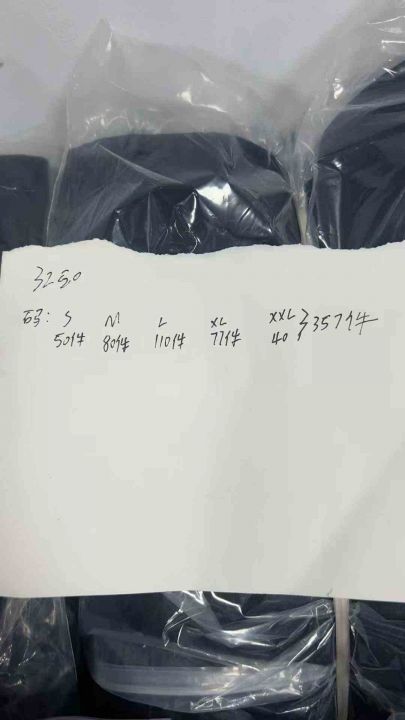 3250
码: S M L XL XXL
50件 80件 110件 77件 40 }357件